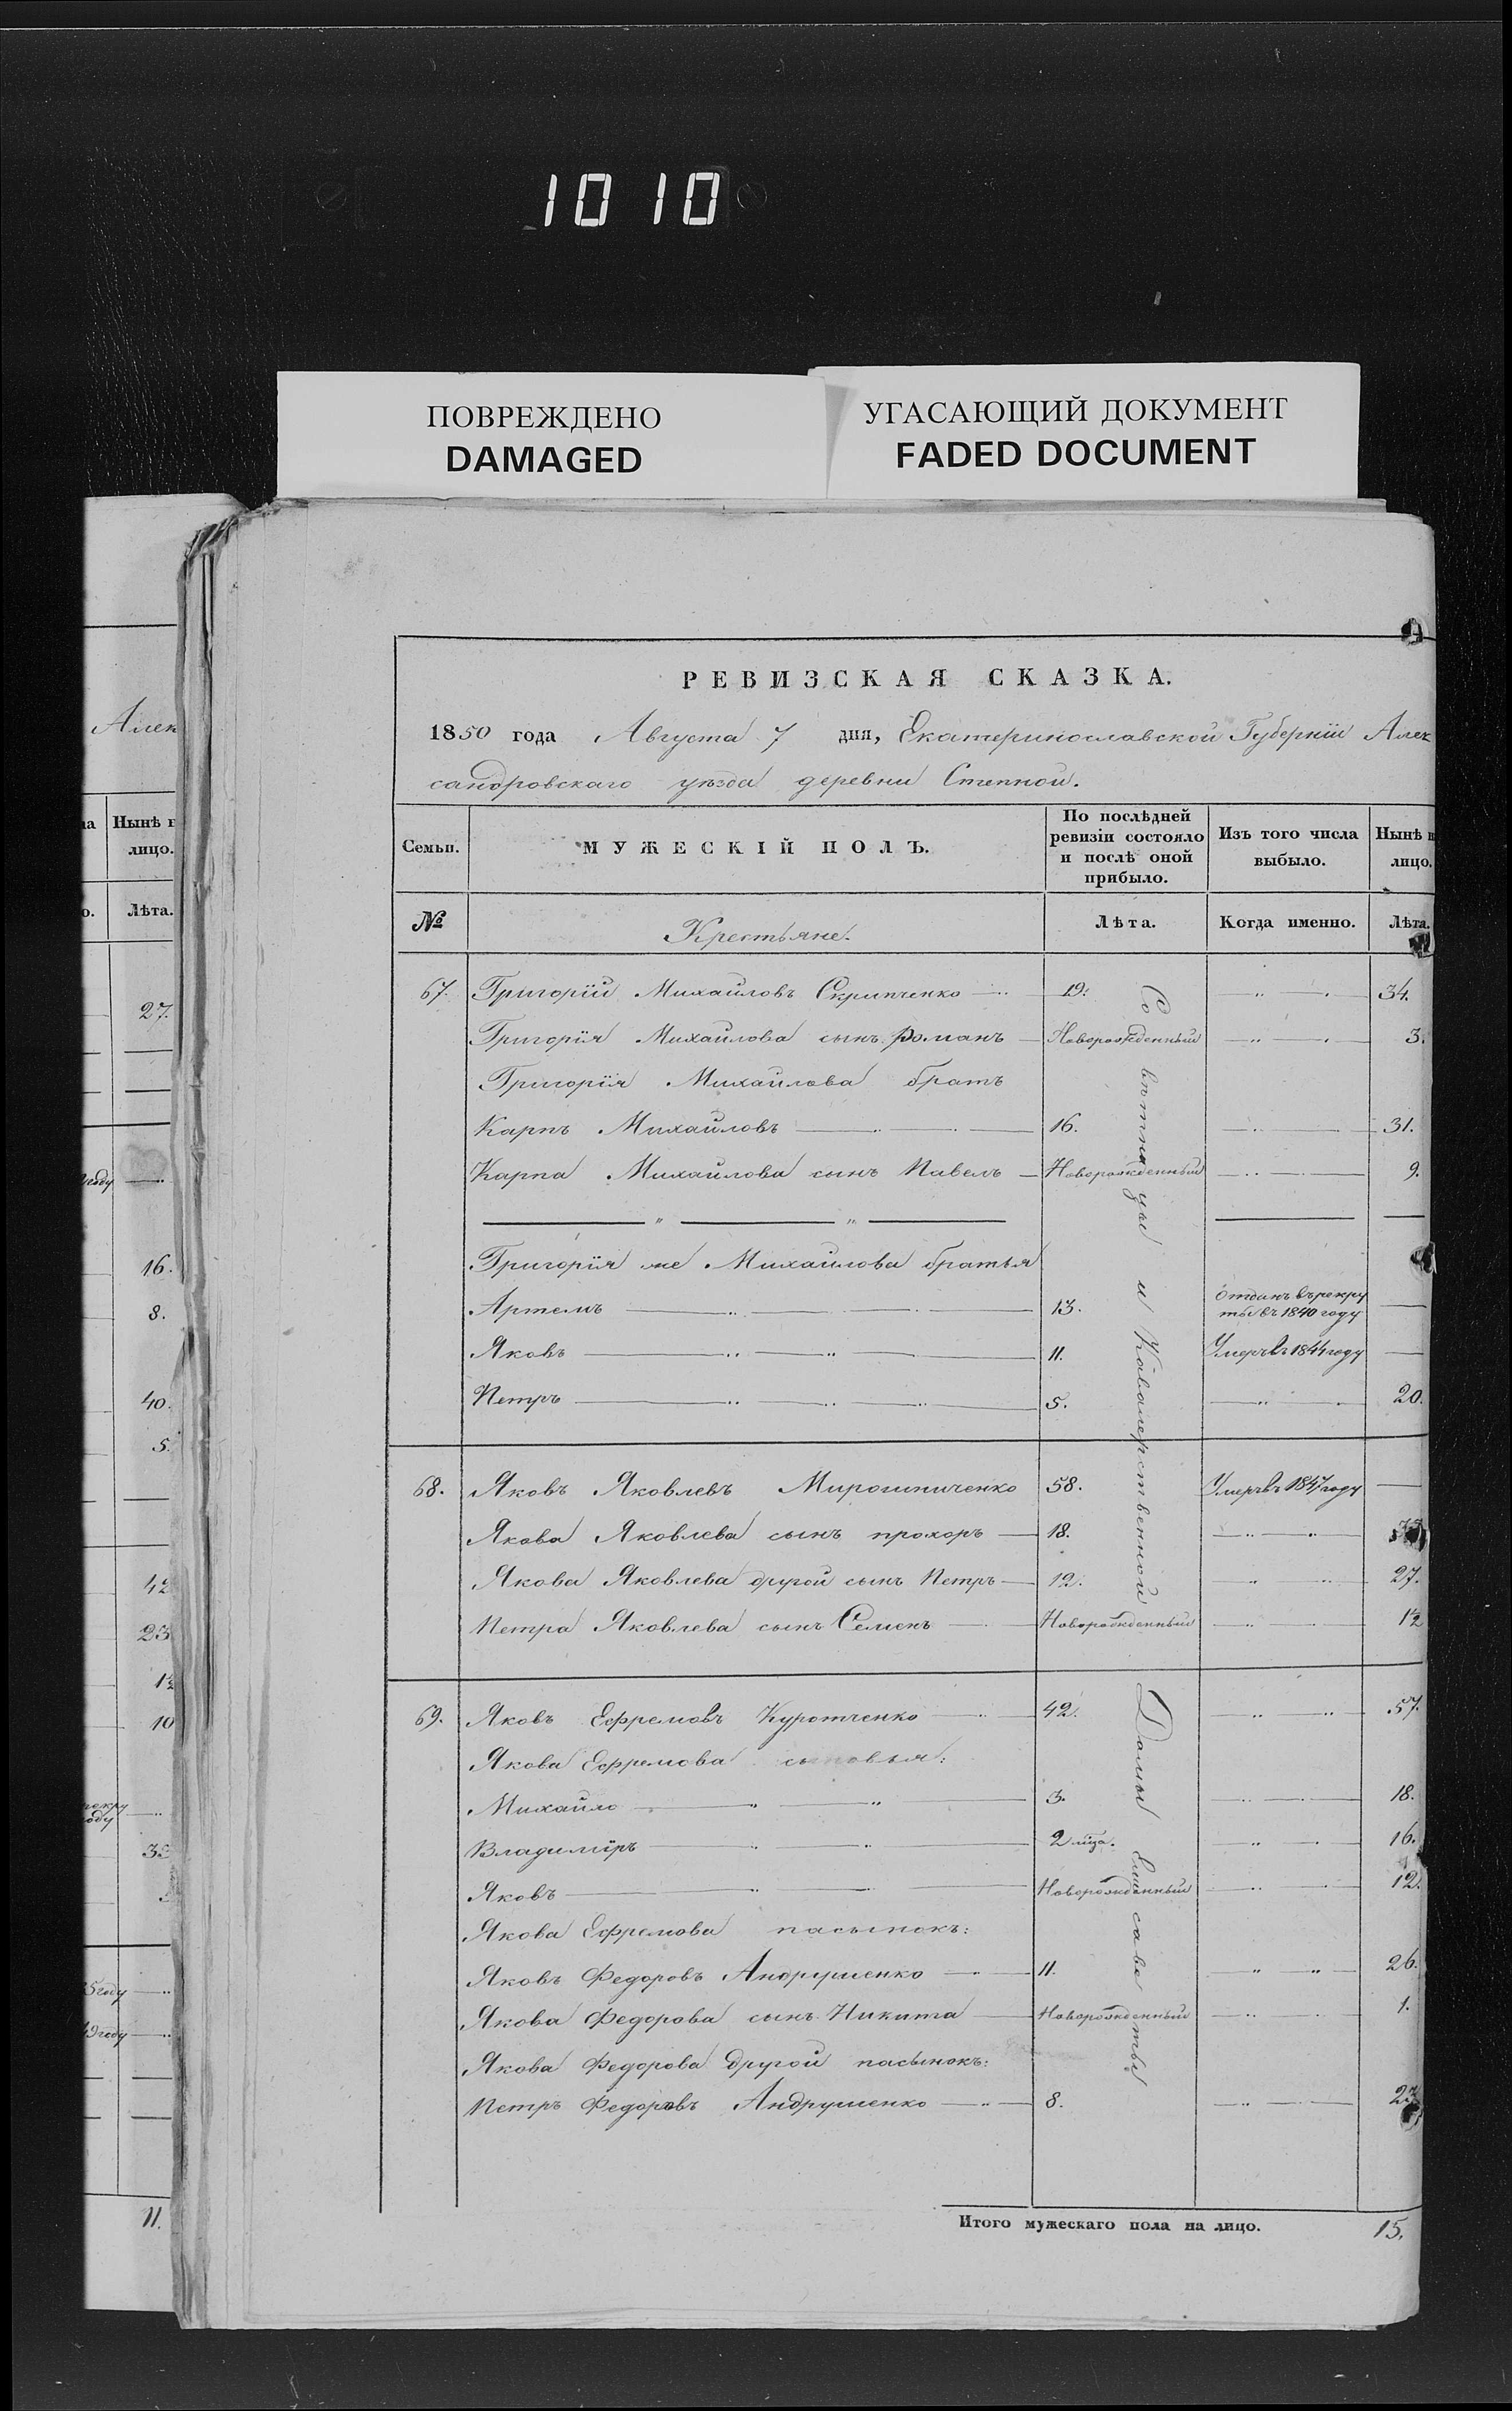 1010
ПОВРЕЖДЕНО
DAMAGED
УГАСАЮЩИЙ ДОКУМЕНТ
FADED DOCUMENT
Алек
Нынѣ
лицо.
Лѣта.
27.
году
16.
8.
40.
5.
42
23
1½
10
рекру
оду
5 году
9 году
11.
РЕВИЗСКАЯ СКАЗКА.
1850 года Августа 7 дня, Екатеринославской Губерніи Алек
сандровскаго уѣзда деревни Степной.
Семьи. МУЖЕСКІЙ ПОЛЪ. По послѣдней ревизіи состояло и послѣ оной прибыло. Изъ того числа выбыло. Нынѣ на лицо.
№ Крестьяне. Лѣта. Когда именно. Лѣта.
67. Григорій Михайловъ Скрипченко 19. 34.
Григорія Михайлова сынъ Романъ Новорожденный 3.
Григорія Михайлова братъ
Карпъ Михайловъ 16. 31.
Карпа Михайлова сынъ Павелъ Новорожденный 9.
Григорія же Михайлова братья
Артемъ 13. отданъ въ рекру
ты въ 1840 году
Яковъ 11. Умеръ въ 1844 году
Петръ 5. 20.
68. Яковъ Яковлевъ Мирошниченко 58. Умеръ въ 1847 году
Якова Яковлева сынъ прохоръ 18.
Якова Яковлева другой сынъ Петръ 12. 27.
Петра Яковлева сынъ Семенъ Новорожденный 1½
69. Яковъ Ефремовъ Куротченко 42. 57.
Якова Ефремова сыновья:
Михайло 3. 18.
Владиміръ 2 мца. 16.
Яковъ Новорожденный 12.
Якова Ефремова пасынокъ:
Яковъ Федоровъ Андрушенко 11. 26.
Якова Федорова сынъ Никита Новорожденный 1.
Якова Федорова другой пасынокъ:
Петръ Федоровъ Андрушенко 8. 23
Совѣтницы и Кавалерственной Дамы Елисаветы
Итого мужескаго пола на лицо. 15.